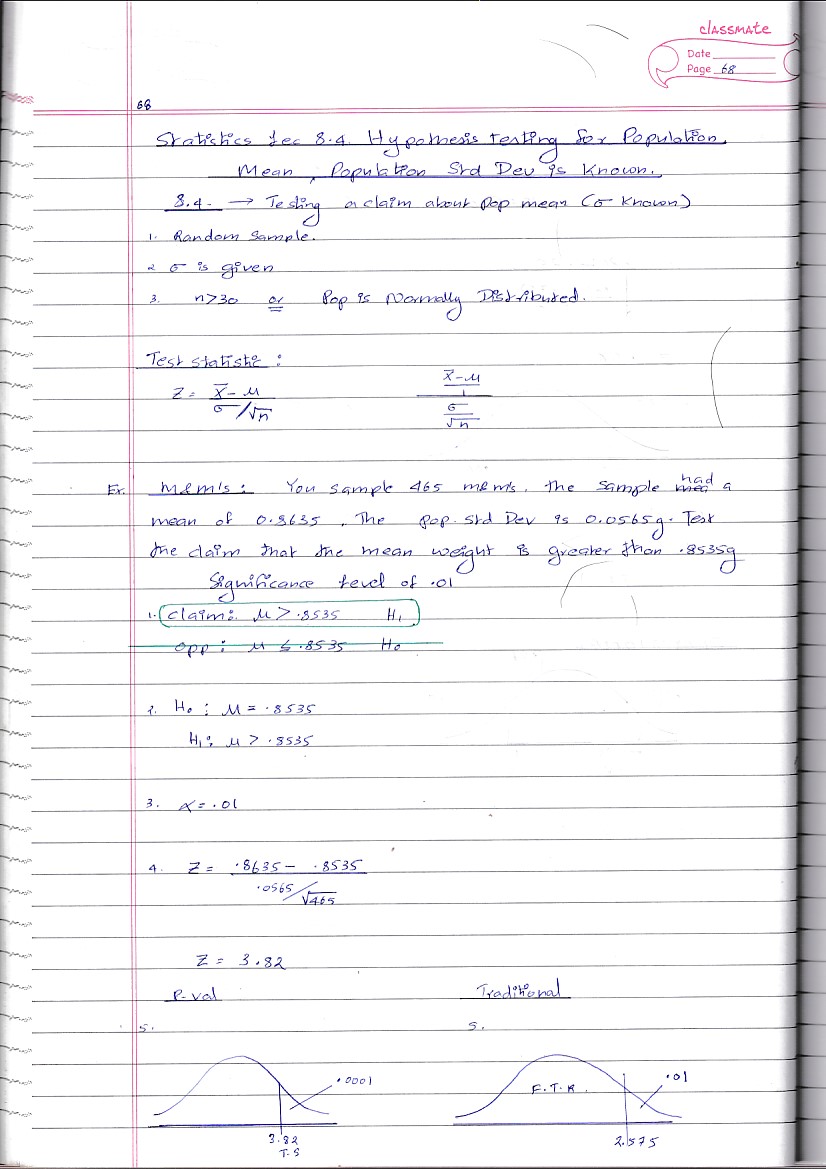 classmate
Date
Page 68
68
Statistics Lec 8.4. Hypothesis testing for Population
Mean, Population Std Dev is Known.
8.4. → Testing a claim about Pop mean (σ Known)
1. Random Sample.
2. σ is given
3. n>30 or Pop is Normally Distributed.
Test statistic :
Z = x̄ - μ / σ/√n    x̄ - μ / σ/√n
Ex. M&M's : You sample 465 m&m's. The sample had a
mean of 0.8635. The pop. std Dev is 0.0565g. Test
the claim that the mean weight is greater than .8535g
Significance Level of .01
1. claim: μ > .8535 H₁
opp : μ ≤ .8535 H₀
2. H₀ : μ = .8535
H₁ : μ > .8535
3. α = .01
4. Z = .8635 - .8535 / .0565/√465
Z = 3.82
P-val Traditional
5. 5.
.0001 F.T.R. .01
3.82 2.575
T.S